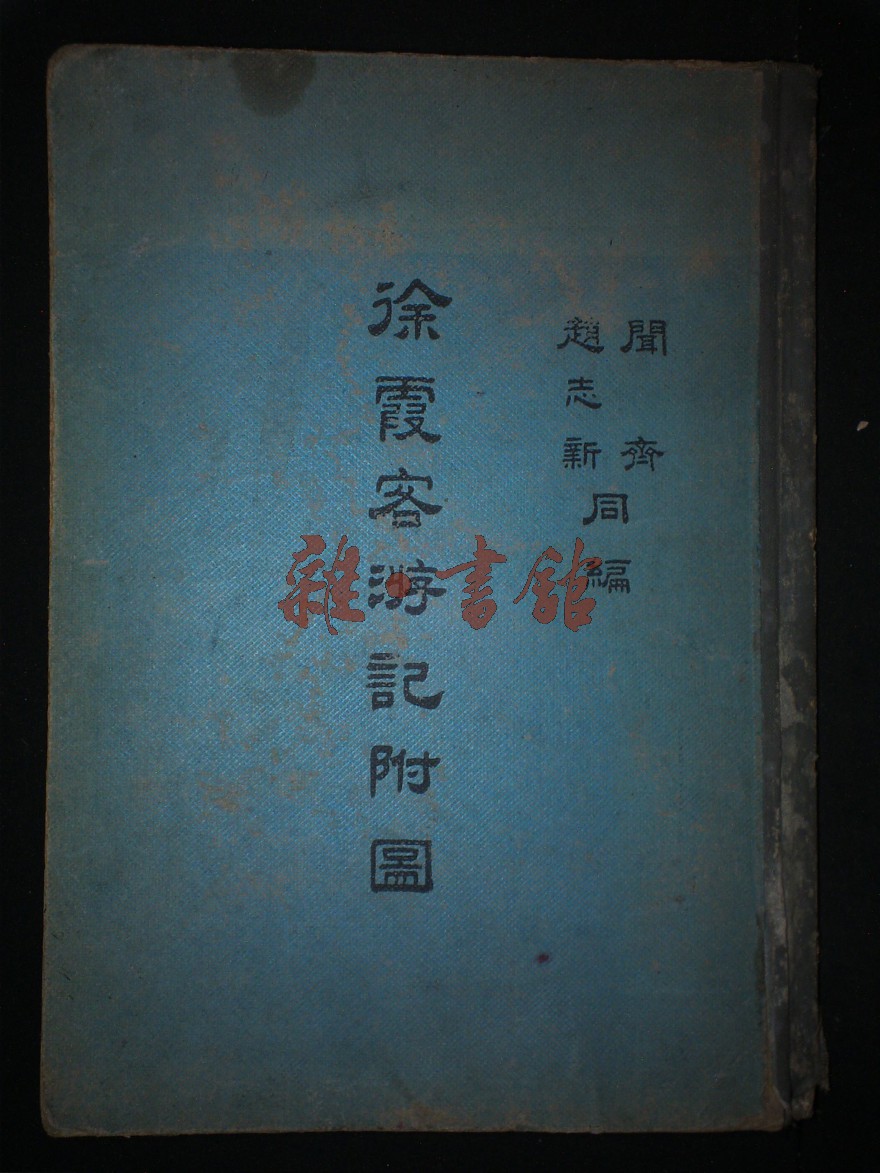 聞齊
趙志新
同編
徐霞客游記附圖
雜·書館